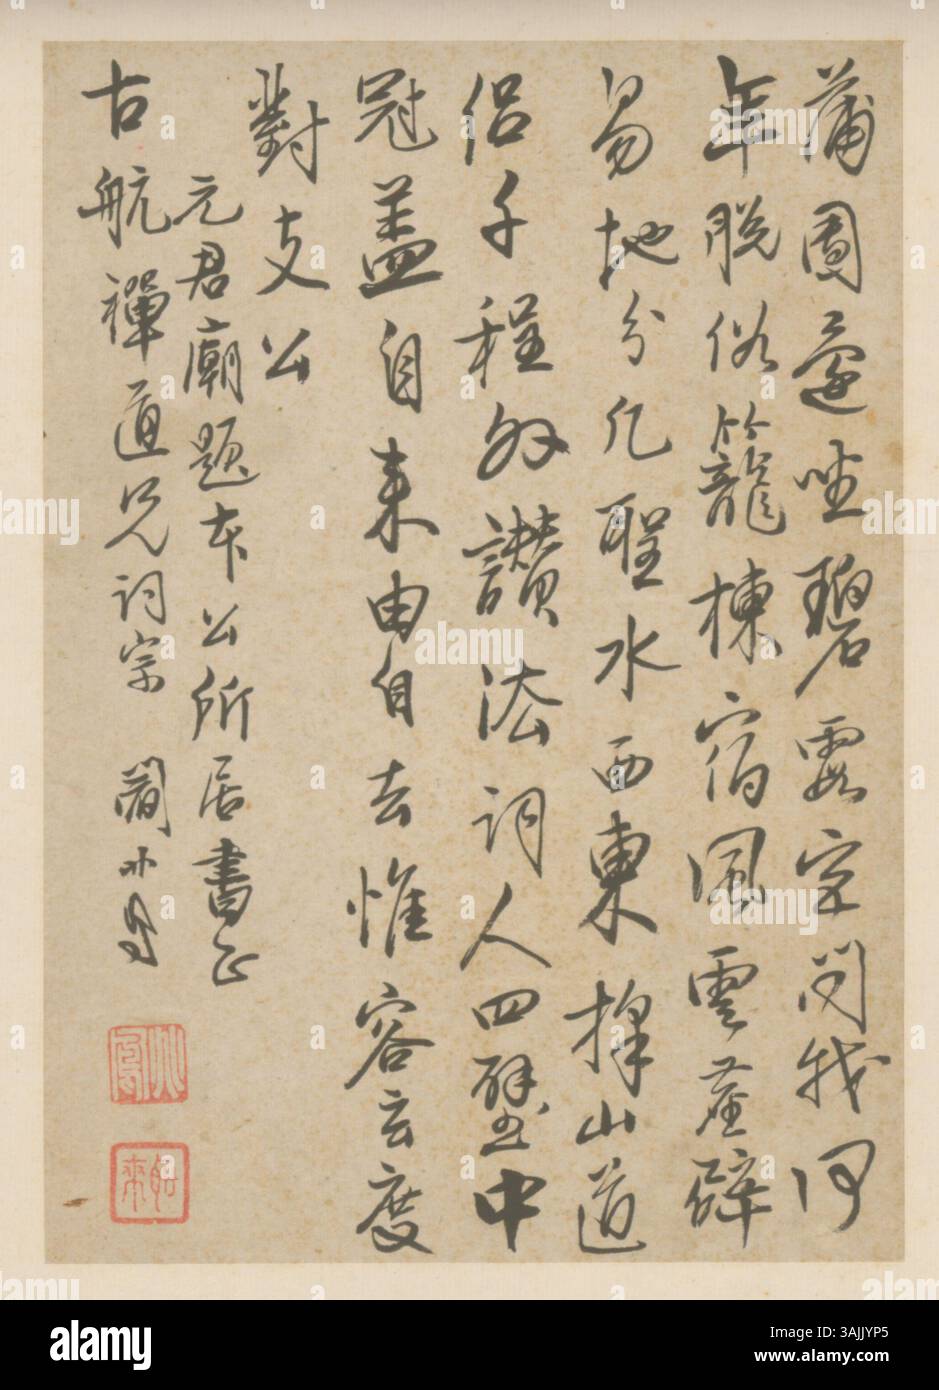 蒲團坐碧霞宮問我何
年脫俗籠棟宿風雲塵辟
易地分凡聖水西東擇山道
侶千程外讚法詞人四壁中
冠蓋自来由自去惟容玄度
對支公
元君廟題本公所居書正
古航禪道兄詞宗
alamy
Image ID: 3AJJYP5
www.alamy.com